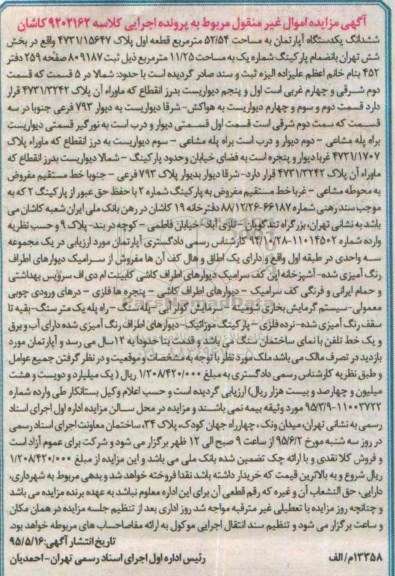 آگهی مزایده اموال غیر منقول مربوط به پرونده اجرایی کلاسه ۹۲۰۲۱۶۲ کاشان
ششدانگ یکدستگاه آپارتمان به مساحت ۵۲/۵۴ مترمربع قطعه اول پلاک ۴۷۳۱/۱۵۶۴۷ واقع در بخش
شش تهران بانضمام پارکینگ شماره یک به مساحت ۱۱/۲۵ مترمربع ذیل ثبت ۸۰۹۱۸۷ صفحه ۲۵۹ دفتر
۴۵۲ بنام خانم اعظم علیزاده الیزه ثبت و سند صادر گردیده است با حدود: شمالا در ۵ قسمت که قسمت
دوم شرقی و چهارم غربی است اول و پنجم دیواریست بدرز انقطاع که ماوراه آن پلاک ۴۷۳۱/۳۲۴۲
قرار دارد قسمت دوم و سوم و چهارم دیواریست به هواکش- شرقا دیواریست به دیوار ۷۹۳ فرعی جنوبا در سه
قسمت که سمت دوم شرقی است قسمت اول قسمتی دیوار و درب است به نورگیر قسمتی دیواریست
براه پله مشاعی - دوم دیوار و درب است براه پله مشاعی - سوم دیواریست به درز انقطاع که ماوراه پلاک
۴۷۳۱/۱۷۰۷ غربا دیوار و پنجره است به فضای خیابان وحدود پارکینگ - شمالا دیواریست بدرز انقطاع که
ماوراه آن پلاک ۴۷۳۱/۳۲۴۲ قرار دارد- شرقا دیوار بدیوار پلاک ۷۹۳ فرعی - جنوبا خط مستقیم مفروض
به محوطه مشاعی - غربا خط مستقیم مفروض به پارکینگ شماره ۲ با حفظ حق عبور از پارکینگ ۲ که به
موجب سند رهنی شماره ۶۶۱۸۷-۸۸/۱۲/۲۶ دفترخانه ۱۹ کاشان در رهن بانک ملی ایران شعبه کاشان می
باشد به نشانی تهران، بزرگراه تندگویان - نازی آباد- خیابان فاطمی - کوچه در بند- پلاک ۹ و حسب نظریه
وارده شماره ۱۱۰۱۴۵۰۲-۹۳/۱۰/۲۸ کارشناس رسمی دادگستری آپارتمان مورد ارزیابی در یک مجموعه
سه واحدی در طبقه اول واقع و دارای یک اطاق و هال کف آن ها مفروش از سرامیک دیوارهای اطراف
رنگ آمیزی شده- آشپزخانه اپن کف سرامیک دیوارهای اطراف کاشی کابینت ام دی اف سرویس بهداشتی
و حمام ایرانی و فرنگی کف سرامیک - دیوارهای اطراف کاشی - پنجره ها فلزی - درهای ورودی چوبی
معمولی- سیستم گرمایش بخاری - سرمایش کولر آبی - پله سنگ - راه پله یک متر سنگ- بقیه تا
سقف رنگ آمیزی شده- نرده فلزی - پارکینگ موزائیک- دیوارهای اطراف رنگ آمیزی شده دارای آب و برق
و یک خط تلفن با نمای ساختمان سنگ می باشد و قدمت بنا حدودا به ۱۲ سال می رسد و آپارتمان مورد
بازدید در تصرف مالک می باشد ملک مورد نظر با توجه به مشخصات و موقعیت و در نظر گرفتن جمیع عوامل
و طبق نظریه کارشناس رسمی دادگستری به مبلغ ۱/۲۰۸/۴۲۰/۰۰۰ ریال (یک میلیارد و دویست و هشت
میلیون و چهارصد و بیست هزار ریال) ارزیابی گردیده است و حسب اعلام وکیل بستانکار طی وارده شماره
۱۱۰۰۳۷۲۲-۹۵/۲/۹ مورد وثیقه بیمه نمی باشند و مزایده در محل سالن مزایده اداره اول اجرای اسناد
رسمی به نشانی تهران، میدان ونک، چهارراه جهان کودک، پلاک ۲۴، ساختمان معاونت اجرای اسناد رسمی
در روز سه شنبه مورخ ۹۵/۶/۲ از ساعت ۹ صبح الی ۱۲ ظهر برگزار می شود و شرکت برای عموم آزاد است
و فروش کلا نقدی و با ارائه چک تضمین شده بانک ملی می باشد و این مزایده از مبلغ ۱/۲۰۸/۴۲۰/۰۰۰
ریال شروع و به بالاترین قیمت که خریدار داشته باشد نقدا فروخته خواهد شد و بدهی مربوط به شهرداری،
دارایی، حق انشعاب آن و غیره که رقم قطعی آن برای این اداره معلوم نباشد به عهده برنده مزایده می باشد
و چنانچه روز مزایده با تعطیلی غیر مترقبه مواجه شد روز اداری بعد از تنظیم جلسه مزایده در همان مکان
و ساعت برگزار می شود و تنظیم سند انتقال اجرایی موکول به ارائه مفاصاحساب های مربوطه خواهد بود
تاریخ انتشار آگهی: ۹۵/۵/۱۶
۱۳۳۵۸م/الف رئیس اداره اول اجرای اسناد رسمی تهران- احمدیان